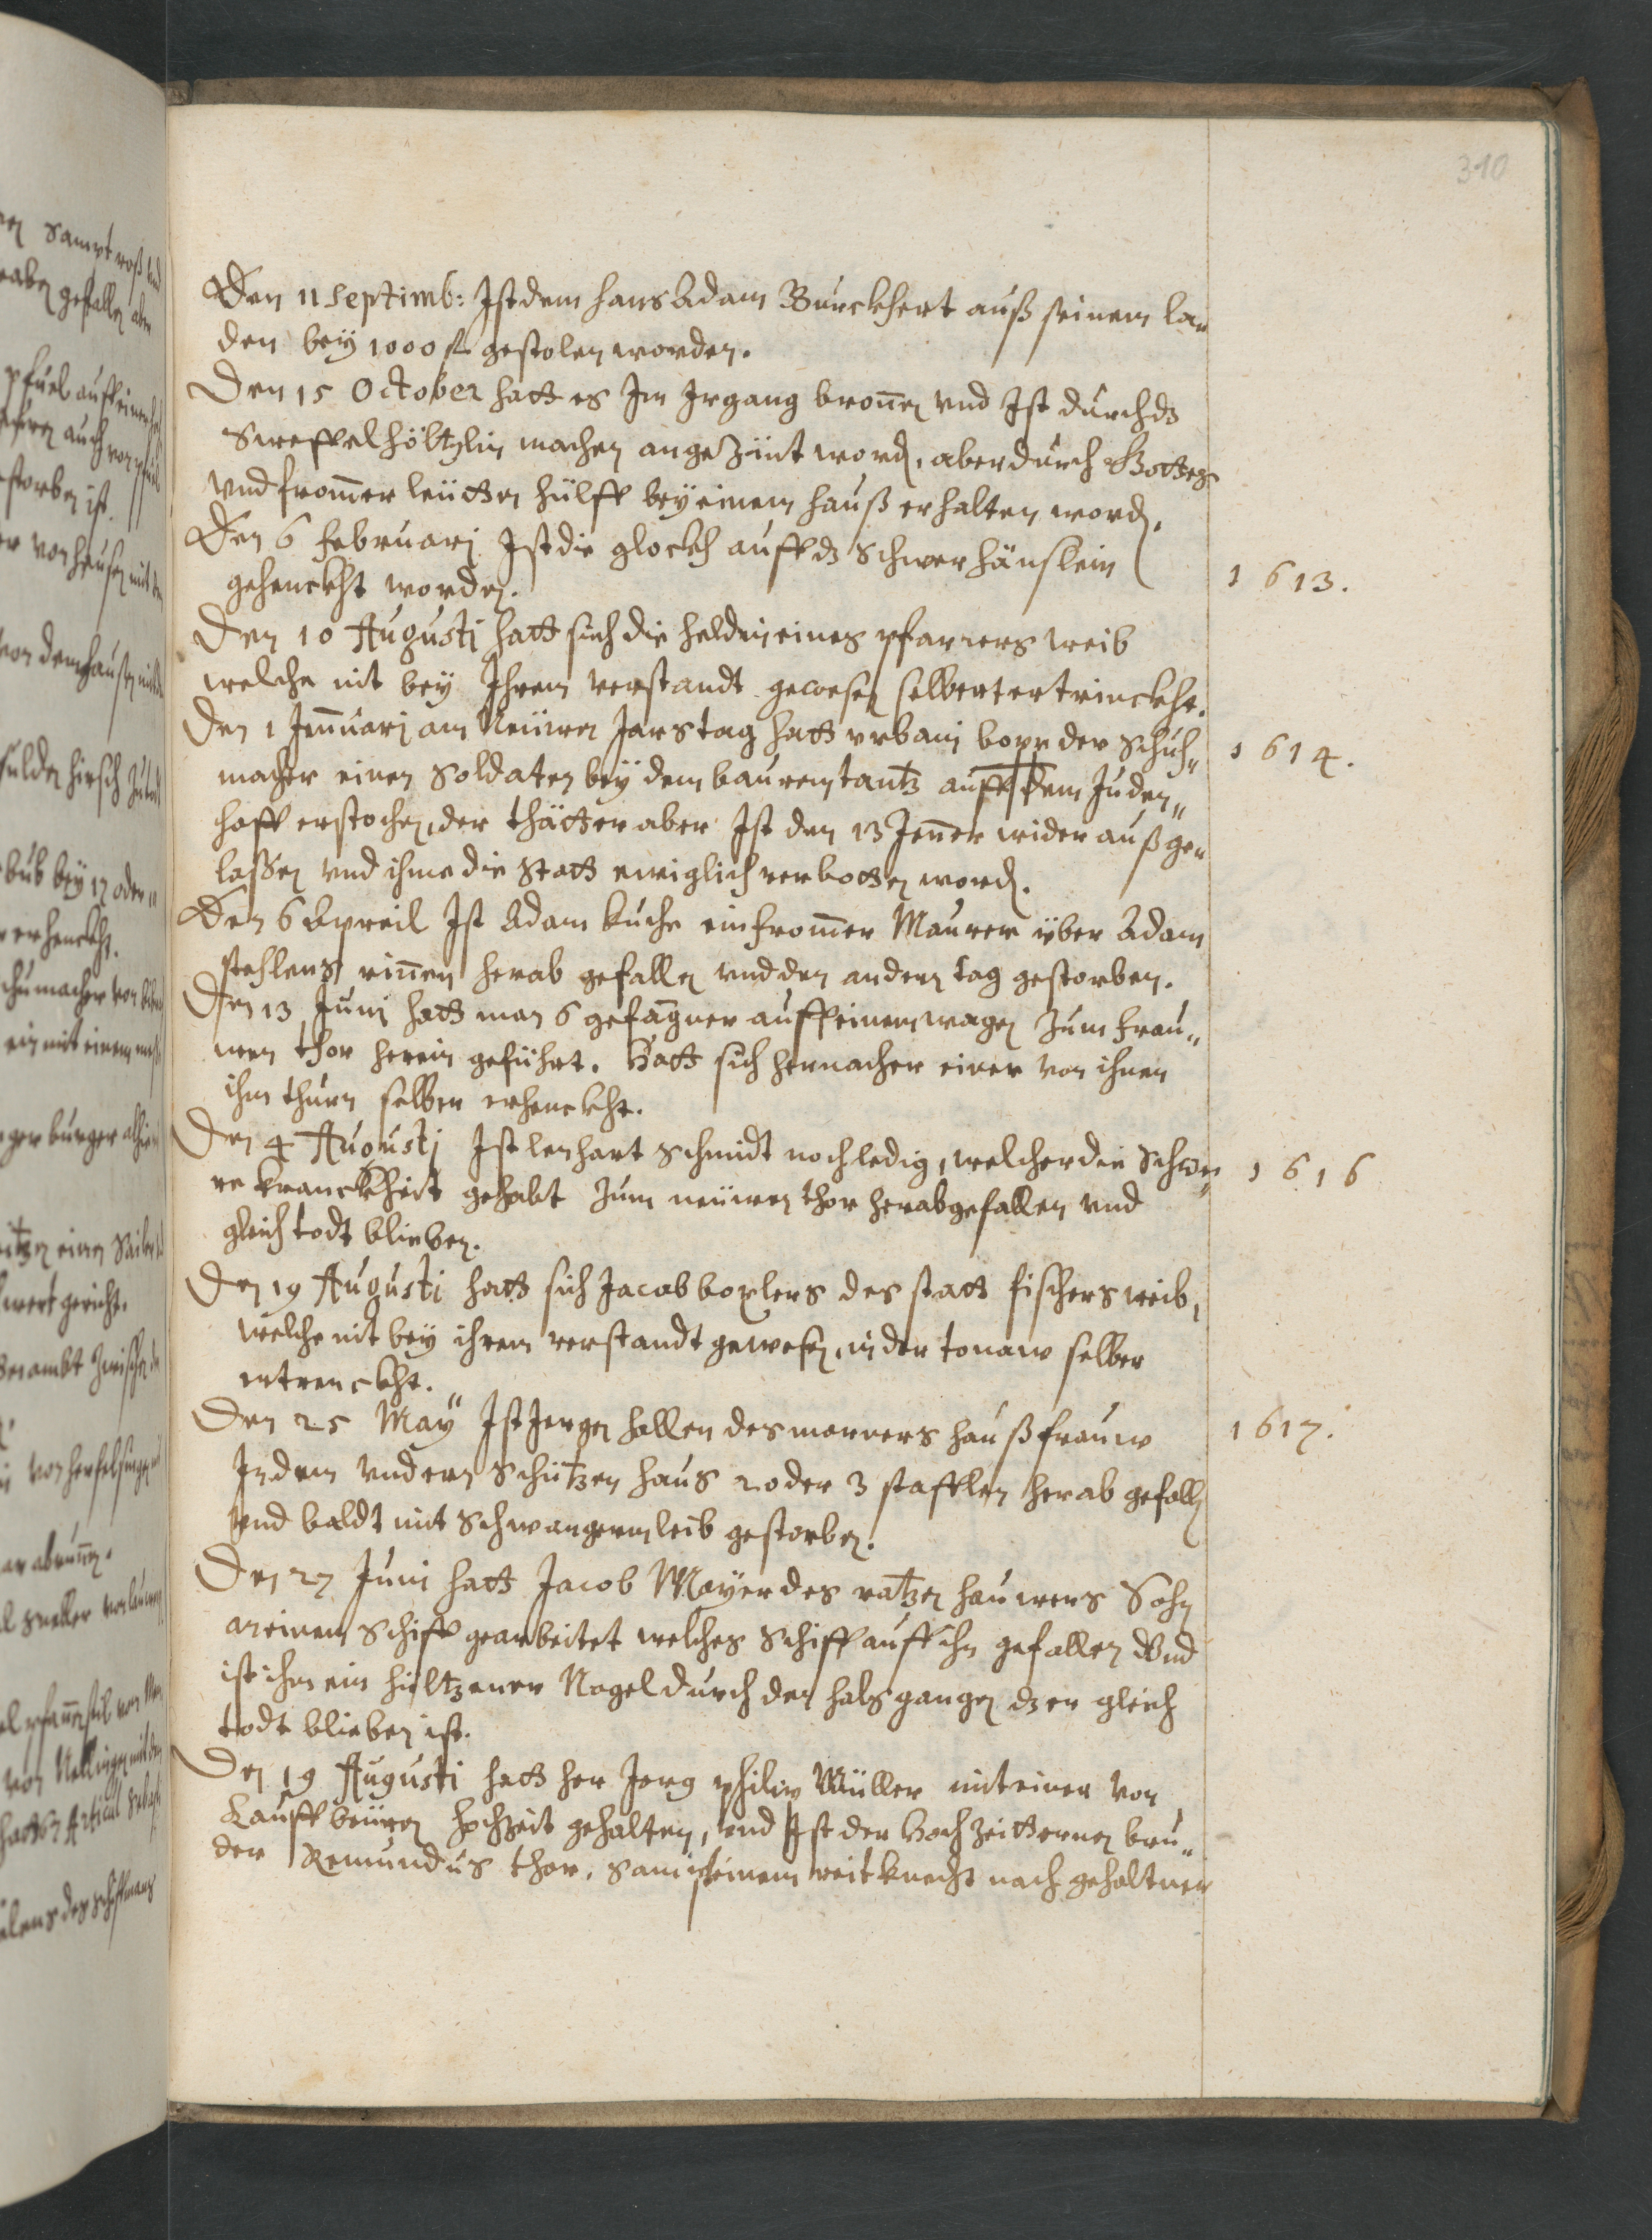 310
Den 11 Septimb: Ist dem hans Adam Burckhert auß seinem la„
den bey 1000 fl gestolen worden.
Den 15 October hatt es Im Irgang bronnen vnd Ist durch dz
Sweffelhöltzlin machen angezünt word. aber durch Gottes
vnd frommer leütten hülff bey einem hauß erhalten word.
Den 6 Februarj Ist die glockh auff dz schwerhäuslein
1613.
gehenckht worden.
Den 10 Augusti hatt sich die heldin eines pfarrers weib
welche nit bey Ihrem verstandt gewesen selbert ertrinckht.
Den 1 Jenuarj am Neüwen Jarstag hatt vrbani bopp der Schuh„
1614.
macher einen Soldaten bey dem bauren tantz auff dem Juden„
hoff erstochen, der thätter aber Ist den 13 Jenner wider auß ge„
lassen vnd ihme die Statt ewiglich verbotten word.
Den 6 Apreil Ist Adam kuche ein frommer Maurer über Adam
stehlens rinnen herab gefallen vnd den andern tag gestorben.
Den 13 Juni hatt man 6 gefangner auff einem wagen zum frau„
wen thor herein geführt. Hatt sich hernacher einer von ihnen
ihm thurn selber erhenckht.
Den 4 Augusti Ist lenhart Schmidt noch ledig, welcher die Schwe„
1616
re kranckheit gehabt zum neüwen thor herabgefallen vnd
gleich todt blieben.
Den 19 Augusti hatt sich Jacob boxlers des statt fischers weib,
welche nit bey ihrem verstandt gewesen, in der tonaw selber
ertrenckht.
Den 25 May Ist Jergen hallen des marners haußfrauw
1617.
In dem vndern Schützen haus 2 oder 3 stafflen herab gefallen
vnd baldt mit schwangerm leib gestorben.
Den 27 Juni hatt Jacob Mayer des ratzen hauwers Sohn
an einem Schiff gearbeitet welches Schiff auff ihn gefallen Vnd
ist ihm ein hültzener Nagel durch den hals gangen dz er gleich
todt blieben ist.
Den 19 Augusti hatt her Jerg philip Müller mit einer von
Kauffbeüren hochzeit gehalten, vnd Ist der Hochzeitteren bru„
der Remundus thor, sampt einem reitknecht nach gehaltner